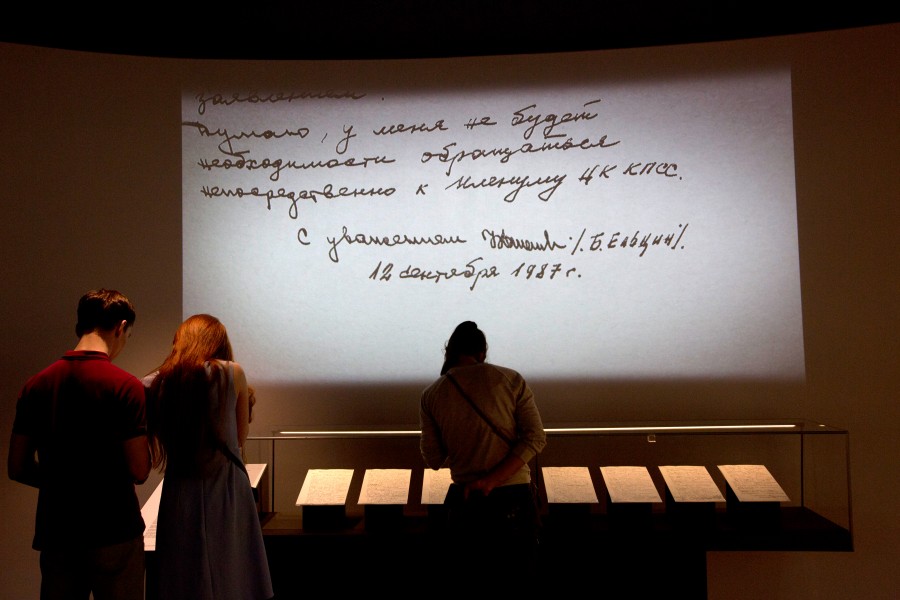 заявлении.
Думаю, у меня не будет
необходимости обращаться
непосредственно к Пленуму ЦК КПСС.
С уважением /Б. Ельцин/.
12 сентября 1987 г.